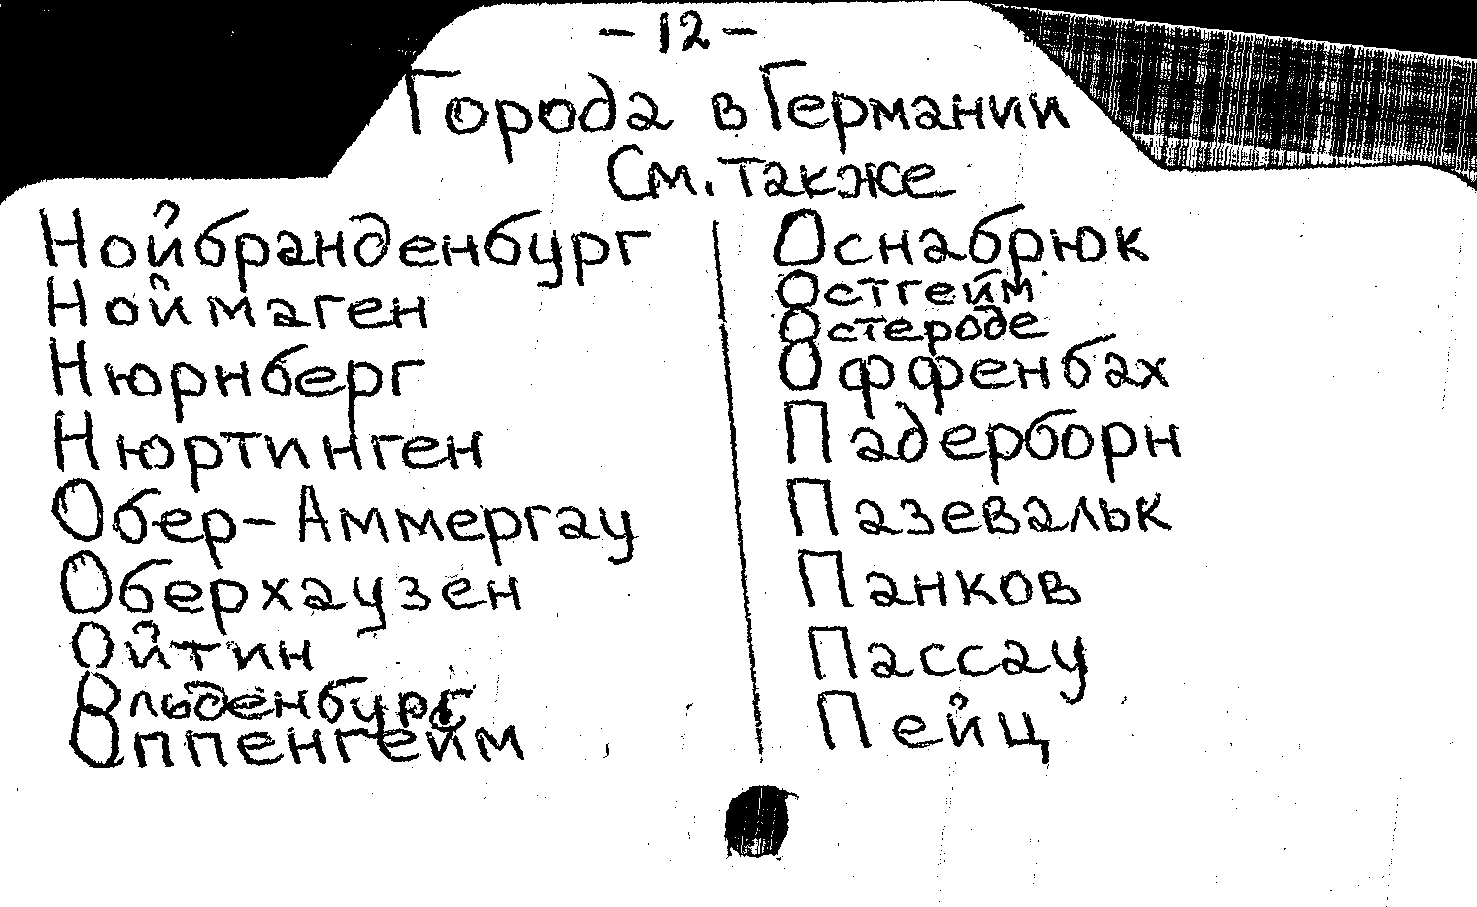 - 12 -
Города в Германии
См. также
Нойбранденбург
Ноймаген
Нюрнберг
Нюртинген
Обер-Аммергау
Оберхаузен
Ойтин
Ольденбург
Оппенгейм
Оснабрюк
Остгейм
Остероде
Оффенбах
Падерборн
Пазевальк
Панков
Пассау
Пейц